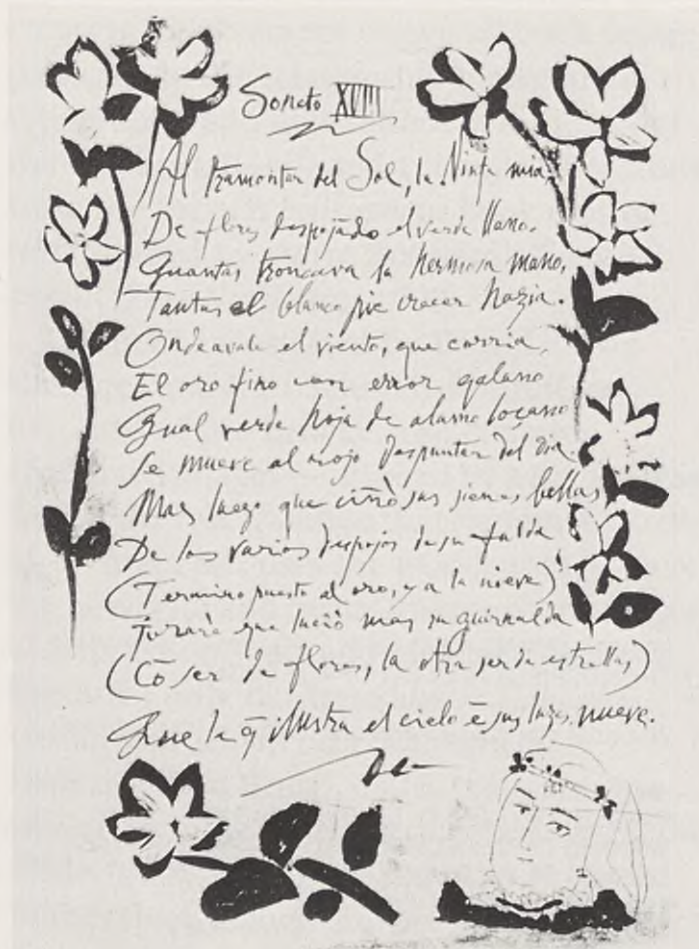 Soneto XVIII
Al tramontar del Sol, la Ninfa mia
De flores despojãdo el verde llano.
Quantas troncava la hermosa mano,
Tantas el blanco pie crecer hazia.
Ondeavale el viento, que corria,
El oro fino con error galano
Qual verde hoja de alamo loçano
Se mueve al rojo despuntar del dia
Mas luego que ciñò sus sienes bellas
De los varios despojos de su falda
(Termino puesto al oro, y a la nieve)
Jurarè que luciò mas su guirnalda
(Cõ ser de flores, la otra ser de estrellas)
Que la q̃ illustra el cielo ẽ sus luzes nueve.